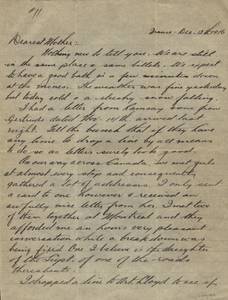 #11
France - Dec. 13th 1916
Dearest Mother:-
Nothing new to tell you. We are still
in the same place & same billets. We expect
to have a good bath in a few minutes down
at the mines. The weather was fine yesterday
but today cold & a steady snow falling.
I had a letter from Granny some from
Gertrude dated Nov. 14th arrived last
night. Tell the bunch that if they have
any time to drop a line by all means
to do so as letters surely look good.
Coming across Canada we met girls
at almost every stop and consequently
gathered a lot of addresses. I only sent
a card to one however & received an
awfully nice letter from her. I met two
of them together at Montreal and they
afforded me an hours very pleasant
conversation while a breakdown was
being fixed. One I believe is the daughter
of the Supt. of one of the roads
thereabouts.
I dropped a line to Art Lloyd to see if